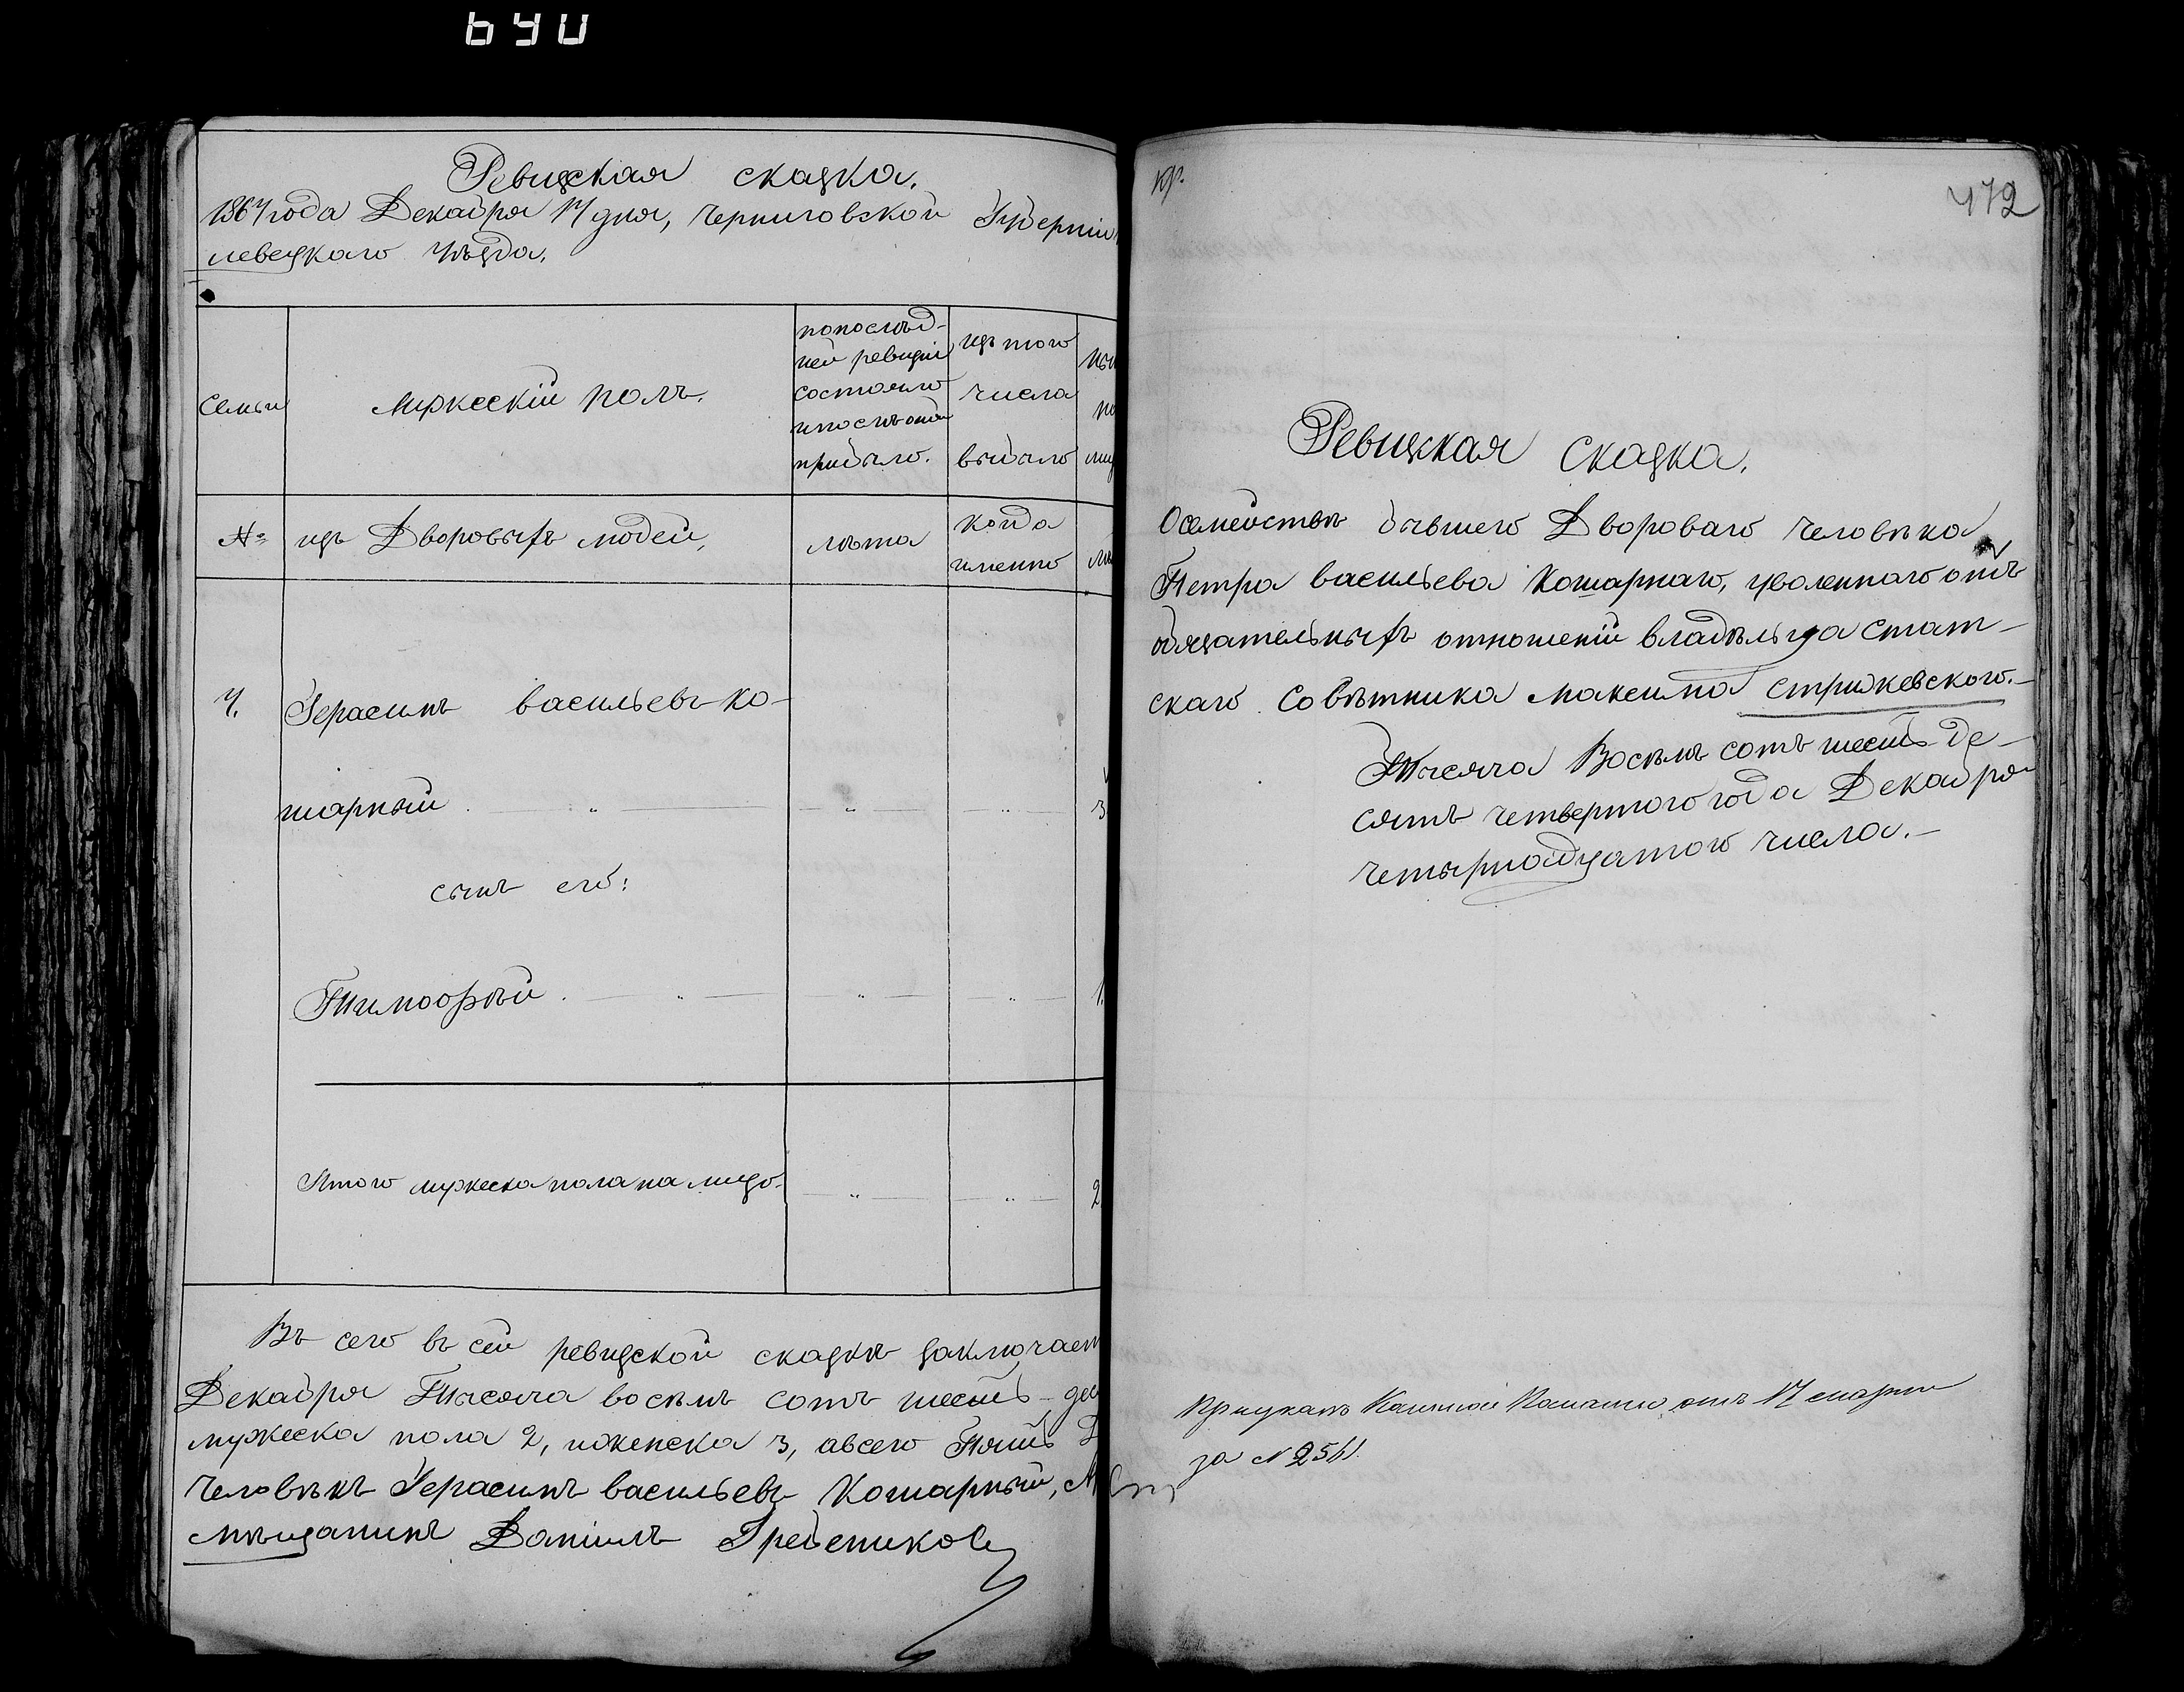 690
Ревизская сказка.
1864 года Декабря 14 дня, Черниговской Губерніи
левецкаго уѣзда.
Семьи
мужескій полъ.
попослѣд-
ней ревизіи
состояло
ипослѣ оной
прибыло.
изъ того
числа
выбыло
№
изъ Дворовыхъ людей,
лѣта
когда
именно
4.
Герасимъ васильевъ Ко-
шарный
сынъ его:
Тимофѣй
1.
Итого мужеска пола на лицо.
2
Въ сего въ сей ревизской сказкѣ заключает
Декабря Тысяча восѣмъ сотъ шесть-
мужеска пола 2, иженска 3, авсего Пять
Человѣкъ Герасимъ васильевъ Кошарный,
мѣщанинъ Даніилъ Гребениковъ
кр.
472
Ревизкая сказка.
Осемействѣ бывшего Двороваго человѣка
Петра васильева Кошарнаго, уволеннаго отъ
обязательныхъ отношеній владѣльца стат-
скаго Совѣтника Максима Стрижевского.
Тысяча Восѣмъ сотъ шесть де-
сятъ четвертого года Декабря
четырнадцатого числа.
при указѣ Казенной Палаты отъ 17 марта
за № 2561.